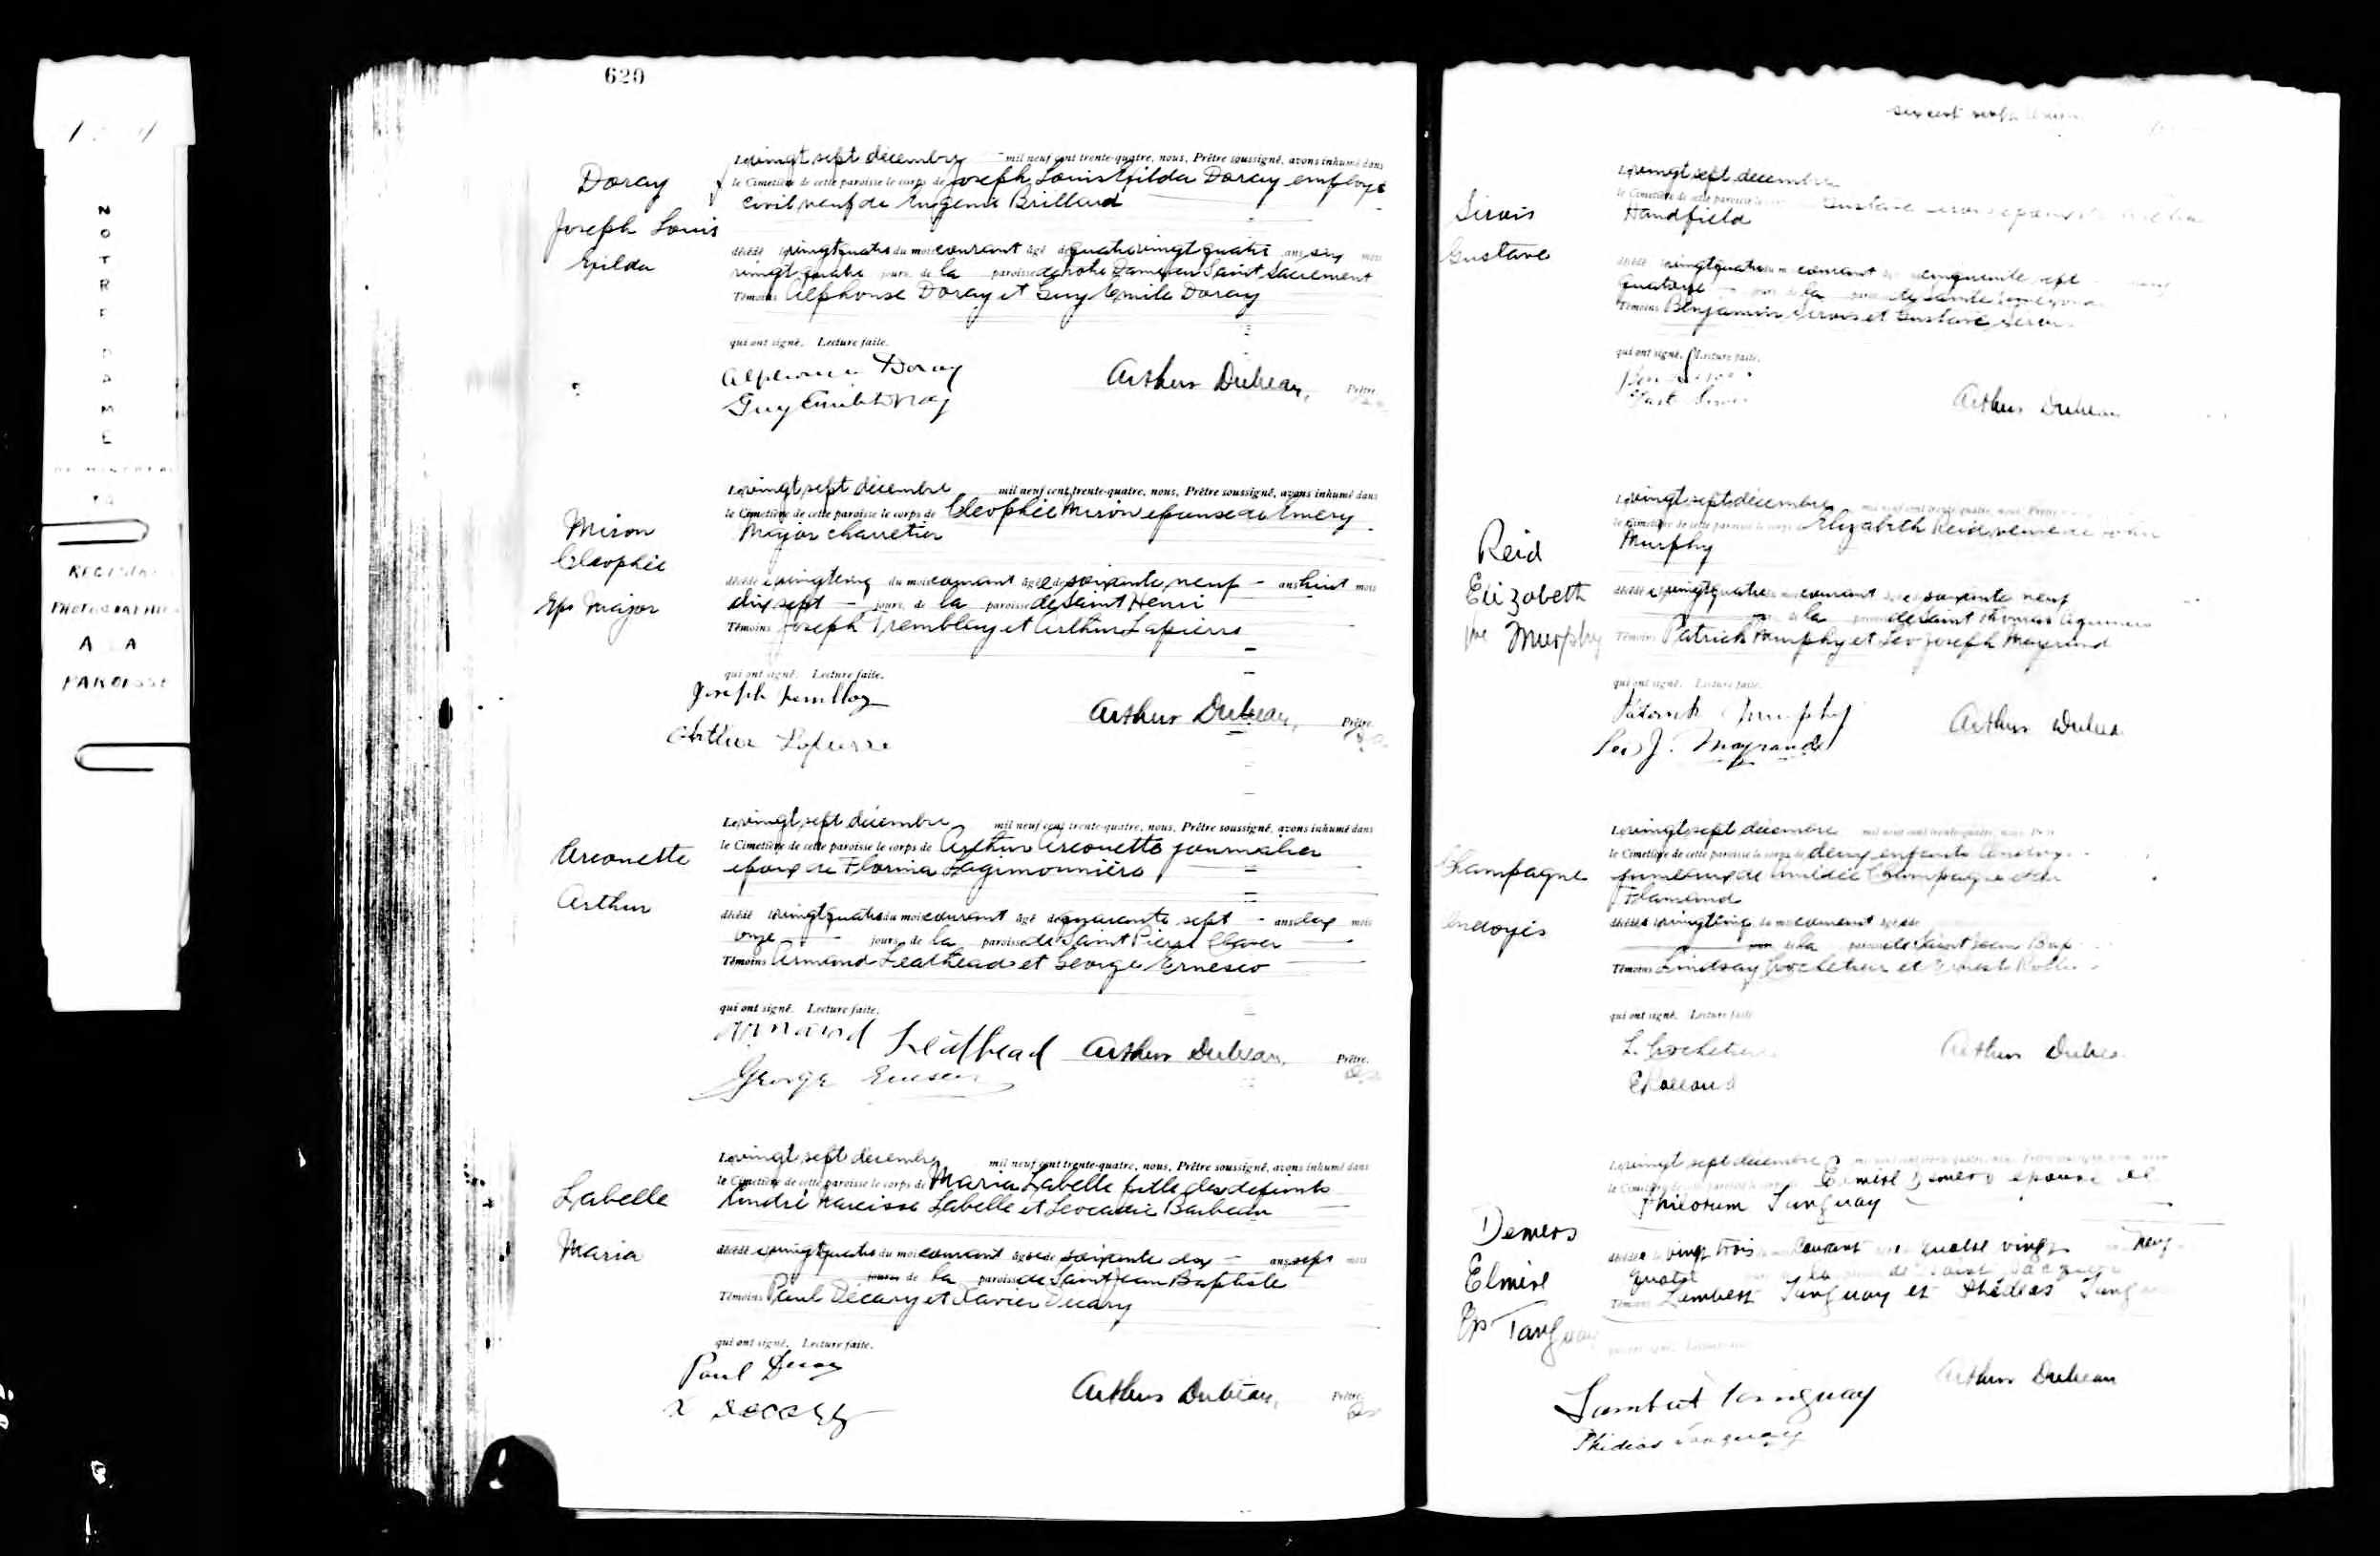 NOTRE DAME
REGISTRE
PHOTOGRAPHIE
A LA
PAROISSE
620
Doray
Joseph Louis
Gilda
Le vingt sept décembre mil neuf cent trente-quatre, nous, Prêtre soussigné, avons inhumé dans
le Cimetière de cette paroisse le corps de Joseph Louis Gilda Doray employé
civil veuf de Eugénie Brillard
décédé le vingt quatre du mois courant âgé de quatre vingt quatre ans six mois
vingt quatre jours, de la paroisse de Notre Dame du Saint Sacrement
Témoins Alphonse Doray et Guy Emile Doray
qui ont signé. Lecture faite.
Alphonse Doray
Guy Emile Doray
Arthur Dubeau, Prêtre.
Miron
Cléophée
Eps Major
Le vingt sept décembre mil neuf cent trente-quatre, nous, Prêtre soussigné, avons inhumé dans
le Cimetière de cette paroisse le corps de Cléophée Miron épouse de Emery
Major charretier
décédée le vingt cinq du mois courant âgée de soixante neuf ans huit mois
dix sept jours, de la paroisse de Saint Henri
Témoins Joseph Tremblay et Arthur Lapierre
qui ont signé. Lecture faite.
Joseph Tremblay
Arthur Lapierre
Arthur Dubeau, Prêtre.
Arcouette
Arthur
Le vingt sept décembre mil neuf cent trente-quatre, nous, Prêtre soussigné, avons inhumé dans
le Cimetière de cette paroisse le corps de Arthur Arcouette journalier
époux de Florina Lagimonnière
décédé le vingt quatre du mois courant âgé de quarante sept ans dix mois
onze jours, de la paroisse de Saint Pierre Claver
Témoins Armand Leathead et George Ernesco
qui ont signé. Lecture faite.
Armand Leathead
George
Arthur Dubeau, Prêtre.
Labelle
Maria
Le vingt sept décembre mil neuf cent trente-quatre, nous, Prêtre soussigné, avons inhumé dans
le Cimetière de cette paroisse le corps de Maria Labelle fille des défunts
André Narcisse Labelle et Léocadie Barbeau
décédée le vingt quatre du mois courant âgée de soixante dix ans sept mois
jours de la paroisse de Saint Jean Baptiste
Témoins Paul Décary et Xavier Décary
qui ont signé. Lecture faite.
Paul Décary
X Décary
Arthur Dubeau, Prêtre.
six cent
Sirois
Gustave
Le vingt sept décembre
le Cimetière de cette paroisse Gustave
Handfield
décédé le vingt quatre du mois courant âgé cinquante sept
quatorze de la
Témoins Benjamin Sirois et Gustave Sirois
qui ont signé. Lecture faite.
Arthur Dubeau
Reid
Elizabeth
Vve Murphy
Le vingt sept décembre mil neuf cent trente-quatre, nous, Prêtre
le Cimetière de cette paroisse le corps Elizabeth Reid veuve de John
Murphy
décédée le vingt quatre courant âgée soixante neuf
de la paroisse de Saint Thomas Aquinas
Témoins Patrick Murphy et Leo Joseph Mayrand
qui ont signé. Lecture faite.
Patrick Murphy
Leo J. Mayrand
Arthur Dubeau
Champagne
Ondoyés
Le vingt sept décembre
le Cimetière de cette paroisse le corps de deux enfants ondoyés
jumeaux de Champagne et de
Flamand
décédés le vingt cinq du mois courant âgés de
jours de la paroisse de Saint Jean Bap
Témoins Lindsay Cocheteux et Ernest
qui ont signé. Lecture faite
L. Cocheteux
Arthur Dubeau
Demers
Elmire
Eps Tanguay
Le vingt sept décembre
Elmire Demers épouse de
Philorum Tanguay
décédée le vingt trois courant quatre vingt neuf
quatre la de Saint Jacques
Témoins Lambert Tanguay et Phidias Tanguay
Lambert Tanguay
Phidias Tanguay
Arthur Dubeau